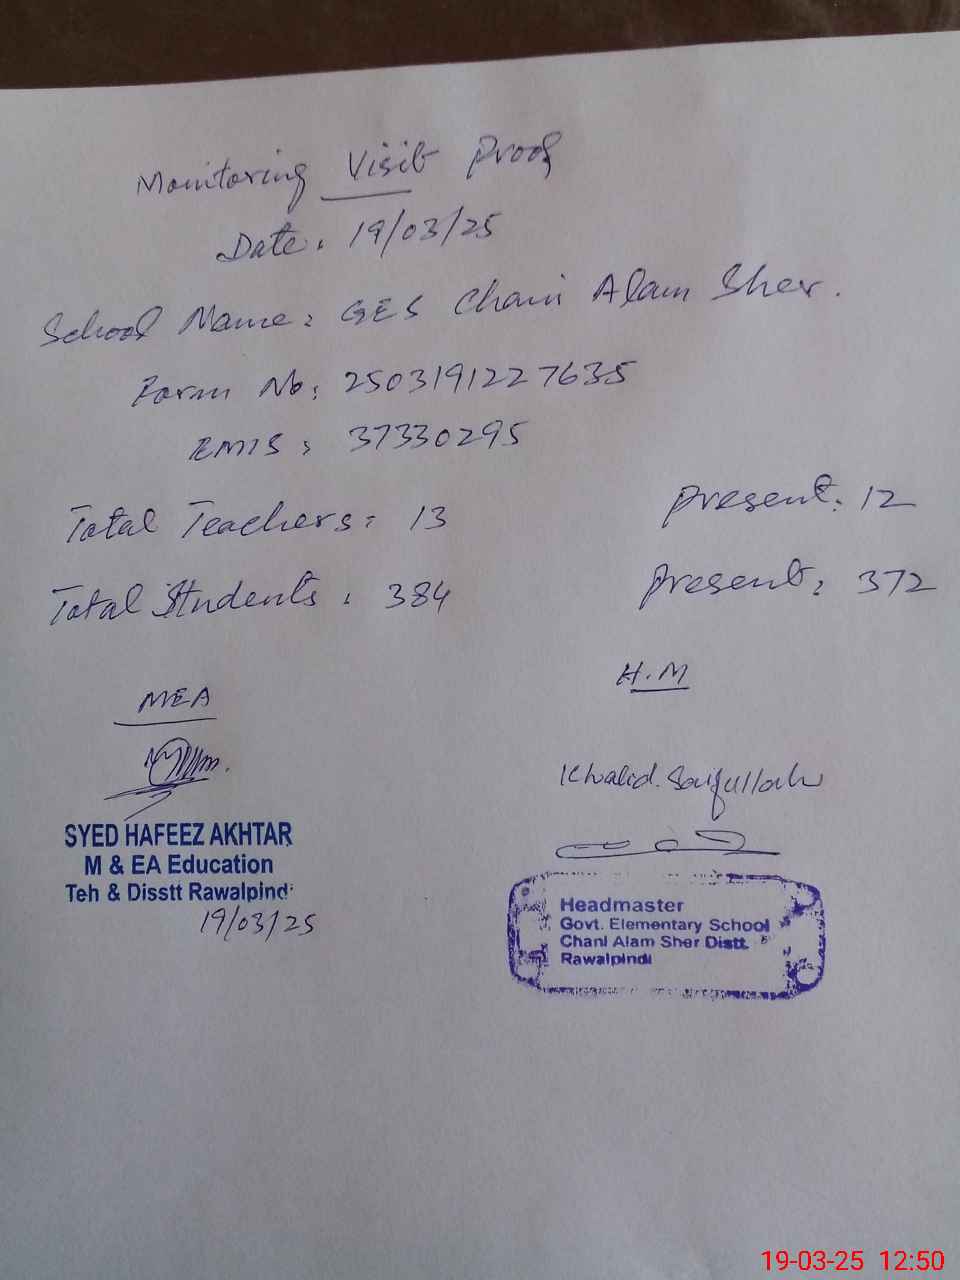 Monitoring Visit Proof
Date: 19/03/25
School Name: GES Chani Alam Sher.
Form No: 2503191227635
EMIS: 37330295
Total Teachers: 13 Present: 12
Total Students: 384 Present: 372
MEA
H.M
Khalid Saifullah
SYED HAFEEZ AKHTAR
M & EA Education
Teh & Disstt Rawalpindi
19/03/25
Headmaster
Govt. Elementary School
Chani Alam Sher Distt.
Rawalpindi
19-03-25 12:50